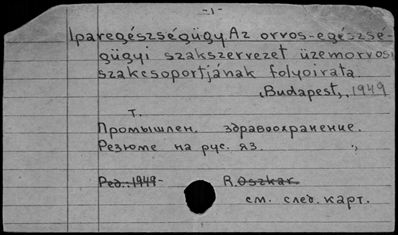 -1-
Iparegészségügy Az orvos-egészsé-
gügyi szakszervezet üzemorvosi
szakcsoportjának folyoirata.
Budapest, 1949
т.
Промышлен. здравоохранение.
Резюме на рус. яз.
Ред.: 1949- R. Oszkar.
см. след. карт.